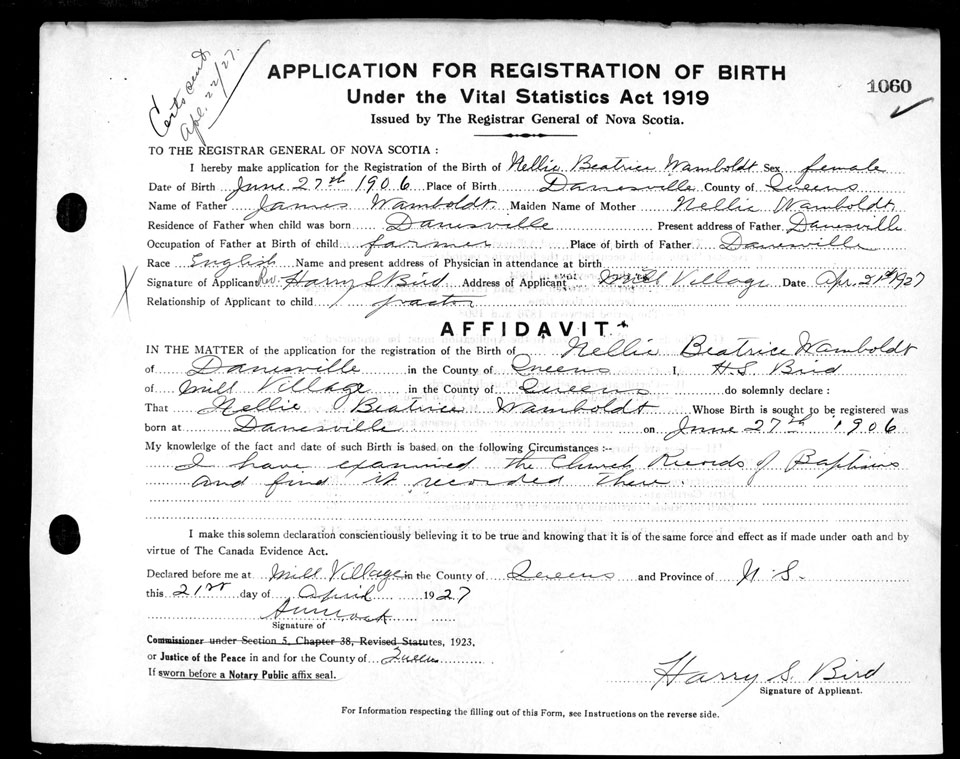 Certs sent
Apl. 22/27.
APPLICATION FOR REGISTRATION OF BIRTH
1060
Under the Vital Statistics Act 1919
Issued by The Registrar General of Nova Scotia.
TO THE REGISTRAR GENERAL OF NOVA SCOTIA :
I hereby make application for the Registration of the Birth of Nellie Beatrice Wamboldt Sex female
Date of Birth June 27th 1906 Place of Birth Danesville County of Queens
Name of Father James Wamboldt Maiden Name of Mother Nellie Wamboldt
Residence of Father when child was born Danesville Present address of Father Danesville
Occupation of Father at Birth of child farmer Place of birth of Father Danesville
Race English Name and present address of Physician in attendance at birth
Signature of Applicant Rev. Harry S Bird Address of Applicant Mill Village Date Apr. 21st 1927
Relationship of Applicant to child pastor
AFFIDAVIT
IN THE MATTER of the application for the registration of the Birth of Nellie Beatrice Wamboldt
of Danesville in the County of Queens I, H.S. Bird
of Mill Village in the County of Queens do solemnly declare :
That Nellie Beatrice Wamboldt Whose Birth is sought to be registered was
born at Danesville on June 27th 1906
My knowledge of the fact and date of such Birth is based on the following Circumstances :--
I have examined the Church Records of Baptisms
and find it recorded there.
I make this solemn declaration conscientiously believing it to be true and knowing that it is of the same force and effect as if made under oath and by
virtue of The Canada Evidence Act.
Declared before me at Mill Village in the County of Queens and Province of N.S.
this 21st day of April 1927
Signature of
Commissioner under Section 5, Chapter 38, Revised Statutes, 1923.
or Justice of the Peace in and for the County of Queens
If sworn before a Notary Public affix seal.
Harry S. Bird
Signature of Applicant.
For Information respecting the filling out of this Form, see Instructions on the reverse side.